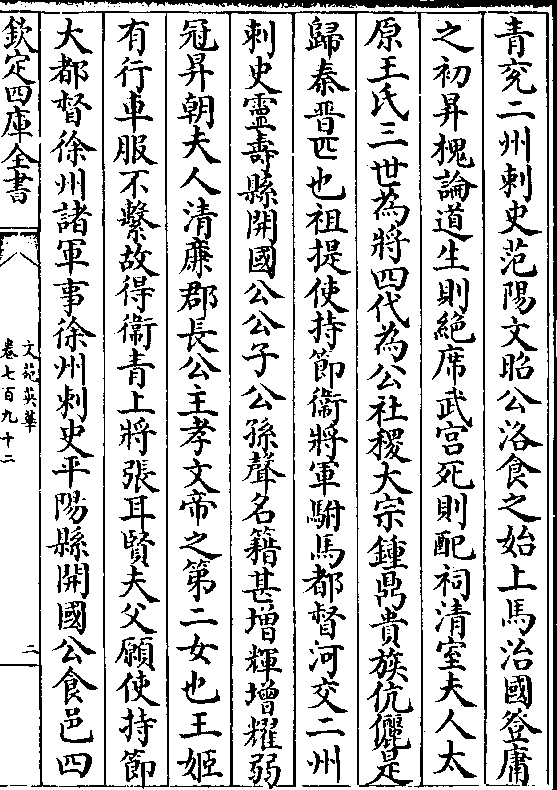 青兖二州刺史范陽文昭公洛食之始上馬治國登庸
之初昇槐論道生則絶席武宫死則配祠清室夫人太
原王氏三世為將四代為公社稷大宗鍾鼎貴族伉儷是
歸秦晉匹也祖提使持節衛將軍駙馬都督河交二州
刺史靈壽縣開國公公子公孫聲名籍甚增輝增耀弱
冠昇朝夫人清廉郡長公主孝文帝之第二女也王姬
有行車服不繫故得衞青上將張耳賢夫父願使持節
大都督徐州諸軍事徐州刺史平陽縣開國公食邑四
欽定四庫全書
文苑英華
卷七百九十二
二